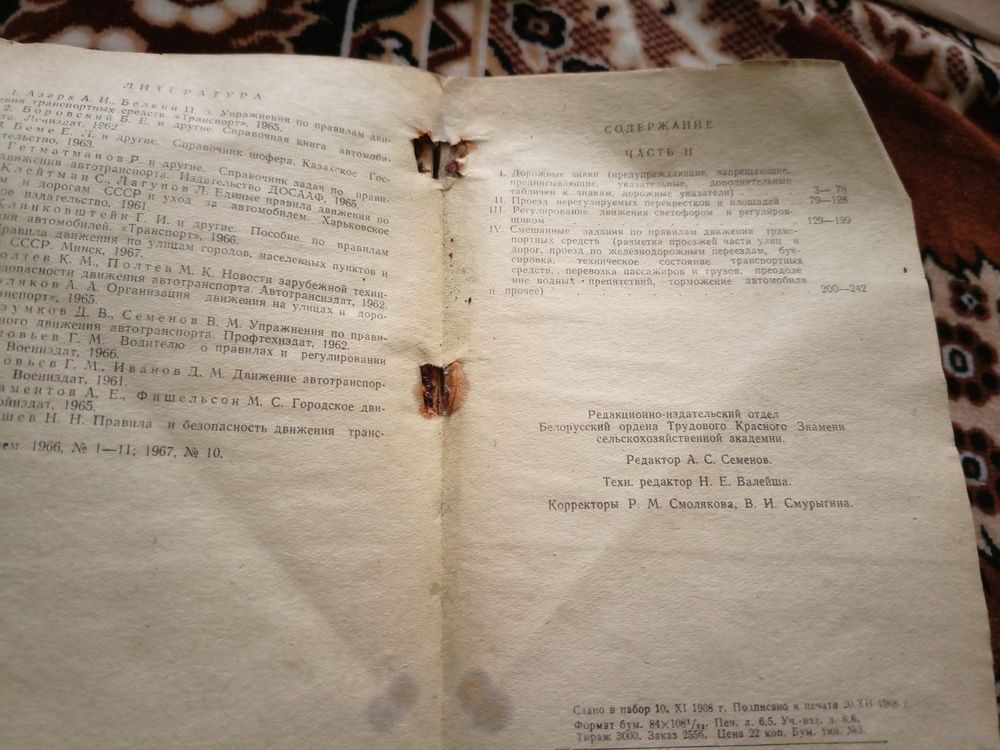 ЛИТЕРАТУРА
1. Азарх А. И., Белкин П. З. Упражнения по правилам дви-
ения транспортных средств. «Транспорт», 1965.
2. Боровский Б. Е. и другие. Справочная книга автомоби-
Лениздат, 1962.
Беме Е. Л. и другие. Справочник шофера. Казахское Гос-
тельство, 1963.
Гетматманов Р. и другие. Справочник задач по прави-
движения автотранспорта. Издательство ДОСААФ, 1965.
Клейтман С., Лагунов Л. Единые правила движения по
м и дорогам СССР и уход за автомобилем. Харьковское
ое издательство, 1961.
Клинковштейн Г. И. и другие. Пособие по правилам
ия автомобилей. «Транспорт», 1966.
равила движения по улицам городов, населенных пунктов и
СССР. Минск, 1967.
олтев К. М., Полтев М. К. Новости зарубежной техни-
езопасности движения автотранспорта. Автотрансиздат, 1962.
ляков А. А. Организация движения на улицах и доро-
нспорт», 1965.
зумков Д. В., Семенов В. М. Упражнения по прави-
ного движения автотранспорта. Профтехиздат, 1962.
ловьев Г. М. Водителю о правилах и регулировании
Воениздат, 1966.
овьев Г. М., Иванов Д. М. Движение автотранспор-
. Воениздат, 1961.
аментов А. Е., Фишельсон М. С. Городское дви-
ойиздат, 1965.
шев Н. Н. Правила и безопасность движения транс-
ем 1966, № 1—11; 1967, № 10.
СОДЕРЖАНИЕ
ЧАСТЬ II
I. Дорожные знаки (предупреждающие, запрещающие,
предписывающие, указательные, дополнительные
таблички к знакам, дорожные указатели) . . 3— 78
II. Проезд нерегулируемых перекрестков и площадей . 79—128
III. Регулирование движения светофором и регулиров-
щиком . . . 129—199
IV. Смешанные задания по правилам движения транс-
портных средств (разметка проезжей части улиц и
дорог, проезд по железнодорожным переездам, бук-
сировка, техническое состояние транспортных
средств, перевозка пассажиров и грузов, преодоле
ние водных препятствий, торможение автомобиля
и прочее) . . . 200—242
Редакционно-издательский отдел
Белорусский ордена Трудового Красного Знамени
сельскохозяйственной академии.
Редактор А. С. Семенов.
Техн. редактор Н. Е. Валейша.
Корректоры Р. М. Смолякова, В. И. Смурыгина.
Сдано в набор 10. XI 1968 г. Подписано к печати 20.XII 1968 г.
Формат бум. 84×108¹/₃₂. Печ. л. 6,5. Уч.-изд. л. 6,6.
Тираж 3000. Заказ 2556. Цена 22 коп. Бум. тип. №3.